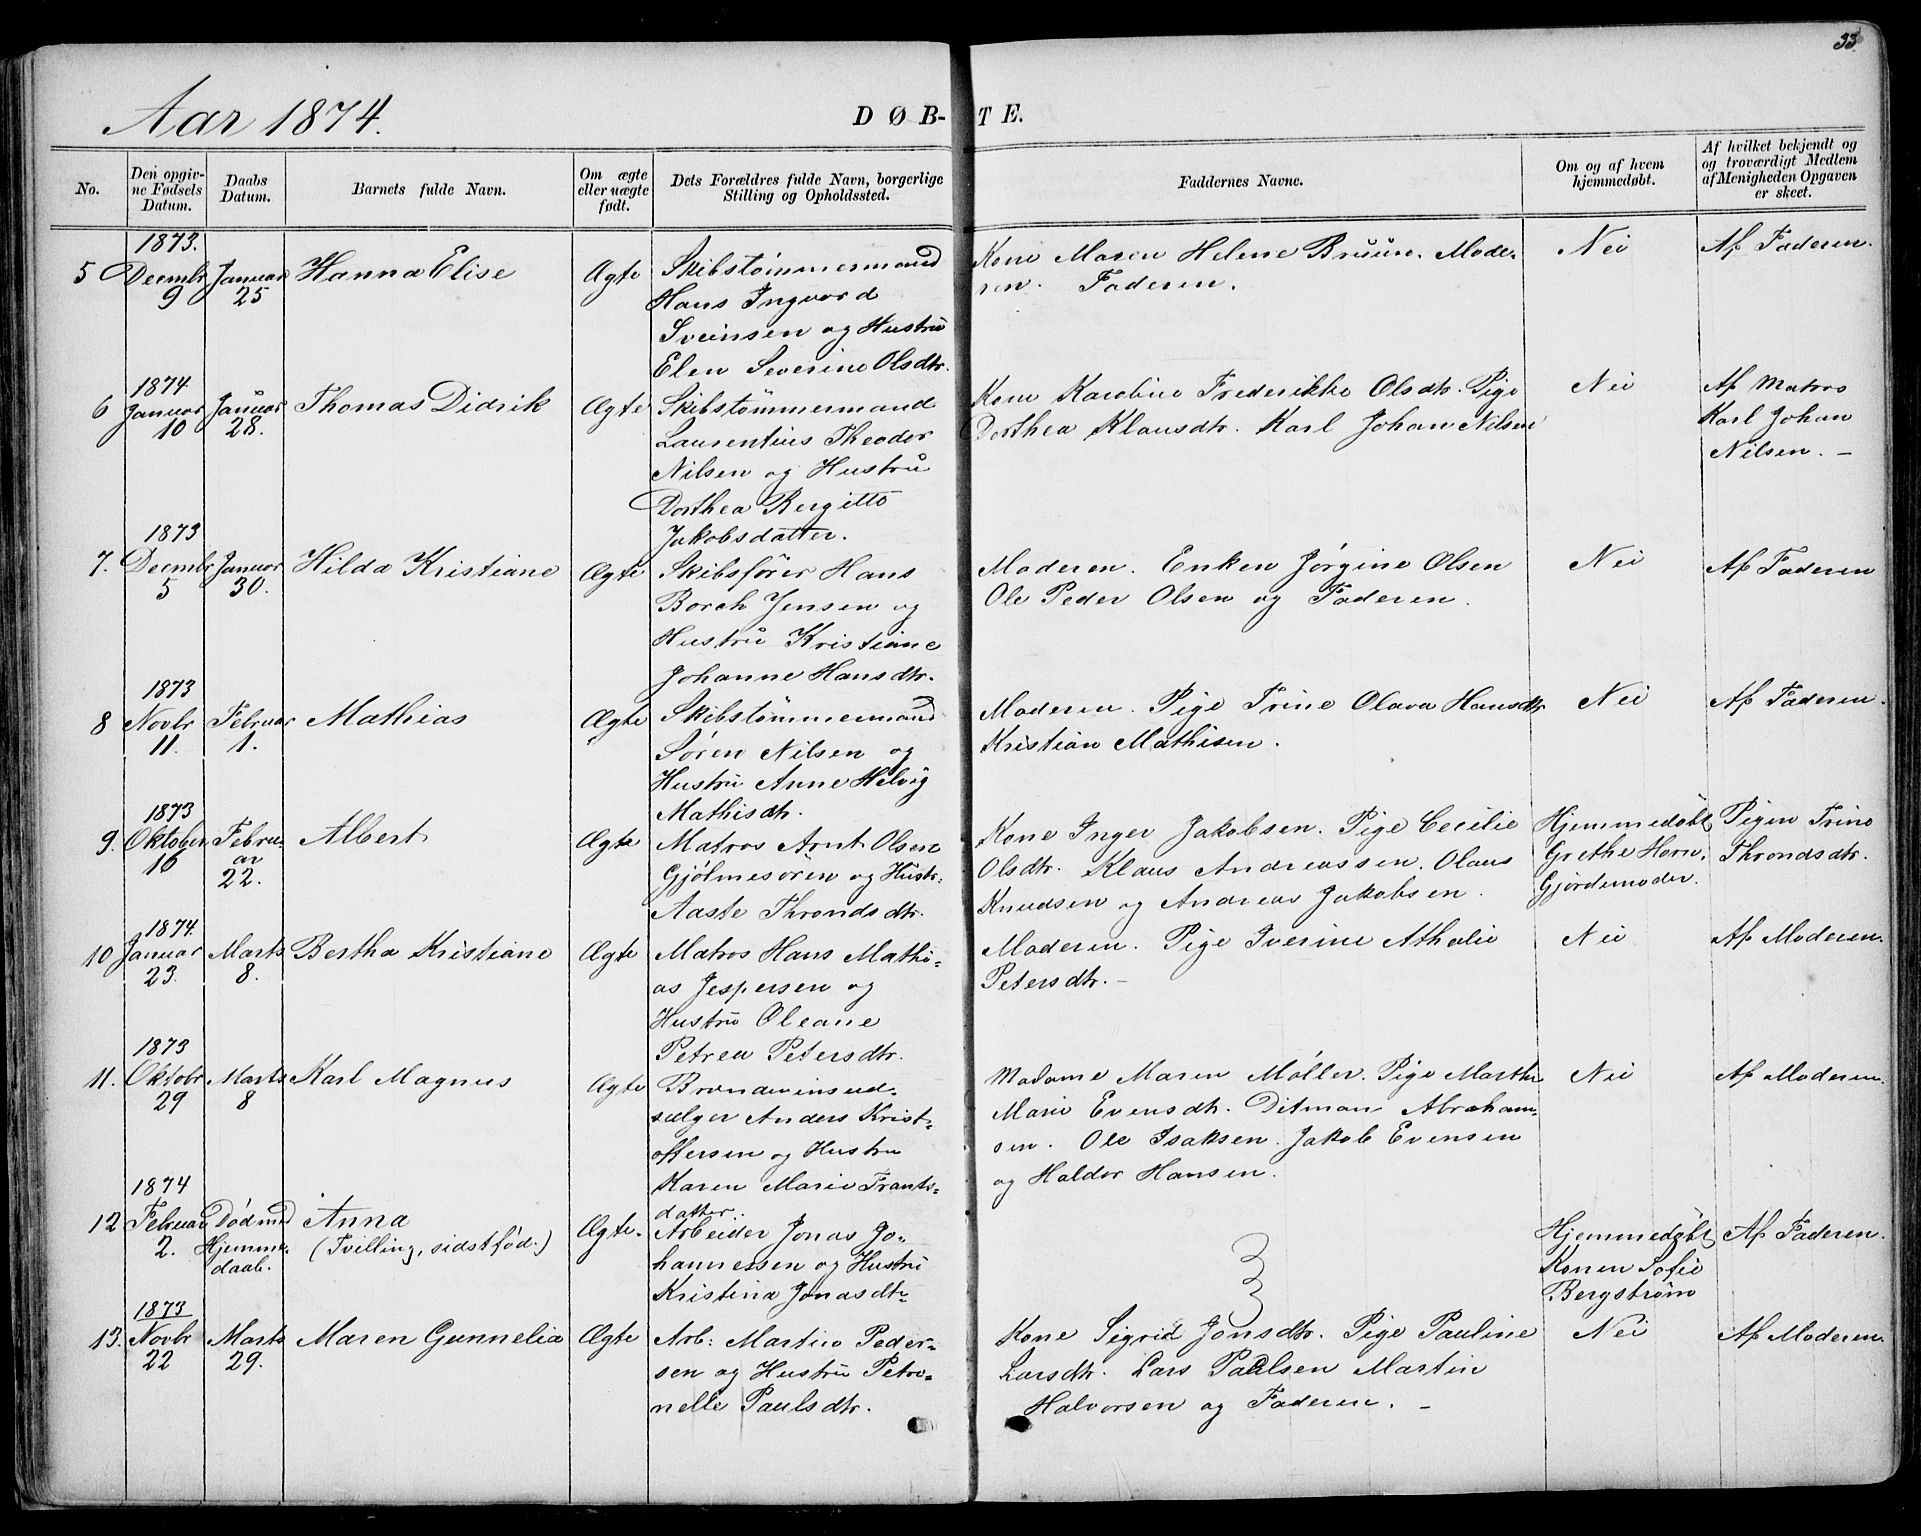 33
Aar 1874.
DØB-TE.
No.
Den opgiv-
ne Fødsels
Datum.
Daabs
Datum.
Barnets fulde Navn.
Om ægte
eller uægte
født.
Dets Forældres fulde Navn, borgerlige
Stilling og Opholdssted.
Faddernes Navne.
Om og af hvem
hjemmedøbt.
Af hvilket bekjendt og
og troværdigt Medlem
af Menigheden Opgaven
er skeet.
1873.
5 Decmbr Januar Hanna Elise Ægte Skibstømmermand Kone Maren Helene Bruun. Mode- Nei Af Faderen.
9 25 Hans Ingvard ren. Faderen.
Sveinsen og Hustru
Elen Severine Olsdtr.
1874
6 Januar Januar Thomas Didrik Ægte Skibstømmermand Kone Karoline Frederikke Olsdtr. Pige Nei Af Matros
10 28. Laurentius Theodor Dorthea Klausdtr. Karl Johan Nilsen Karl Johan
Nilsen og Hustru Nilsen. -
Dorthea Bergitte
Jakobsdatter.
1873
7. Decmbr Januar Hilda Kristiane Ægte Skibsfører Hans Moderen. Enken Jørgine Olsen Nei Af Faderen
5 30. Borch Jensen og Ole Peder Olsen og Faderen.
Hustru Kristiane
Johanne Hansdtr.
1873
8 Novbr Februar Mathias Ægte Skibstømmermand Moderen. Pige Trine Olava Hansdtr Nei Af Faderen.
11. 1. Søren Nilsen og Kristian Mathisen.
Hustru Anne Helvig
Mathisdtr.
1873
9. Oktober Febru- Albert Ægte Matros Arnt Olsen Kone Inger Jakobsen. Pige Cecilie Hjemmedøbt Pigen Trine
16 ar Gjølmesören og Hustr: Olsdtr. Klaus Andreassen. Olaus Grethe Horn, Throndsdtr.
22. Aaste Throndsdtr. Knudsen og Andreas Jakobsen. Gjordemoder.
1874.
10 Januar Marts Bertha Kristiane Ægte Matros Hans Mathi- Moderen. Pige Iverine Athalie Nei Af Moderen.
23. 8. as Jespersen og Petersdtr. -
Hustru Oleane
Petrea Petersdtr.
1873
11. Oktobr Marts Karl Magnus Ægte Brændevinsud- Madame Maren Møller. Pige Marthe Nei Af Moderen.
29 8 sælger Anders Krist- Marie Evensdtr. Ditman Abraham-
offersen og Hustru sen. Ole Isaksen. Jakob Evensen
Karen Marie Frants- og Haldor Hansen.
datter.
1874
12 Februar Død med Anna Ægte. Arbeider Jonas Jo- Hjemmedøbt Af Faderen.
2. Hjemme- (Tvilling, sidstfød.) hannessen og Hustru Konen Sofie
daab. Kristina Jonasdtr Bergstrøm
1873
13. Novbr Marts Maren Gunnelia Ægte Arb: Martin Peder- Kone Sigrid Jonsdtr. Pige Pauline Nei Af Moderen.
22 29. sen og Hustru Petro- Larsdtr. Lars Paulsen Martin
nelle Paulsdtr. Halvorsen og Faderen. -